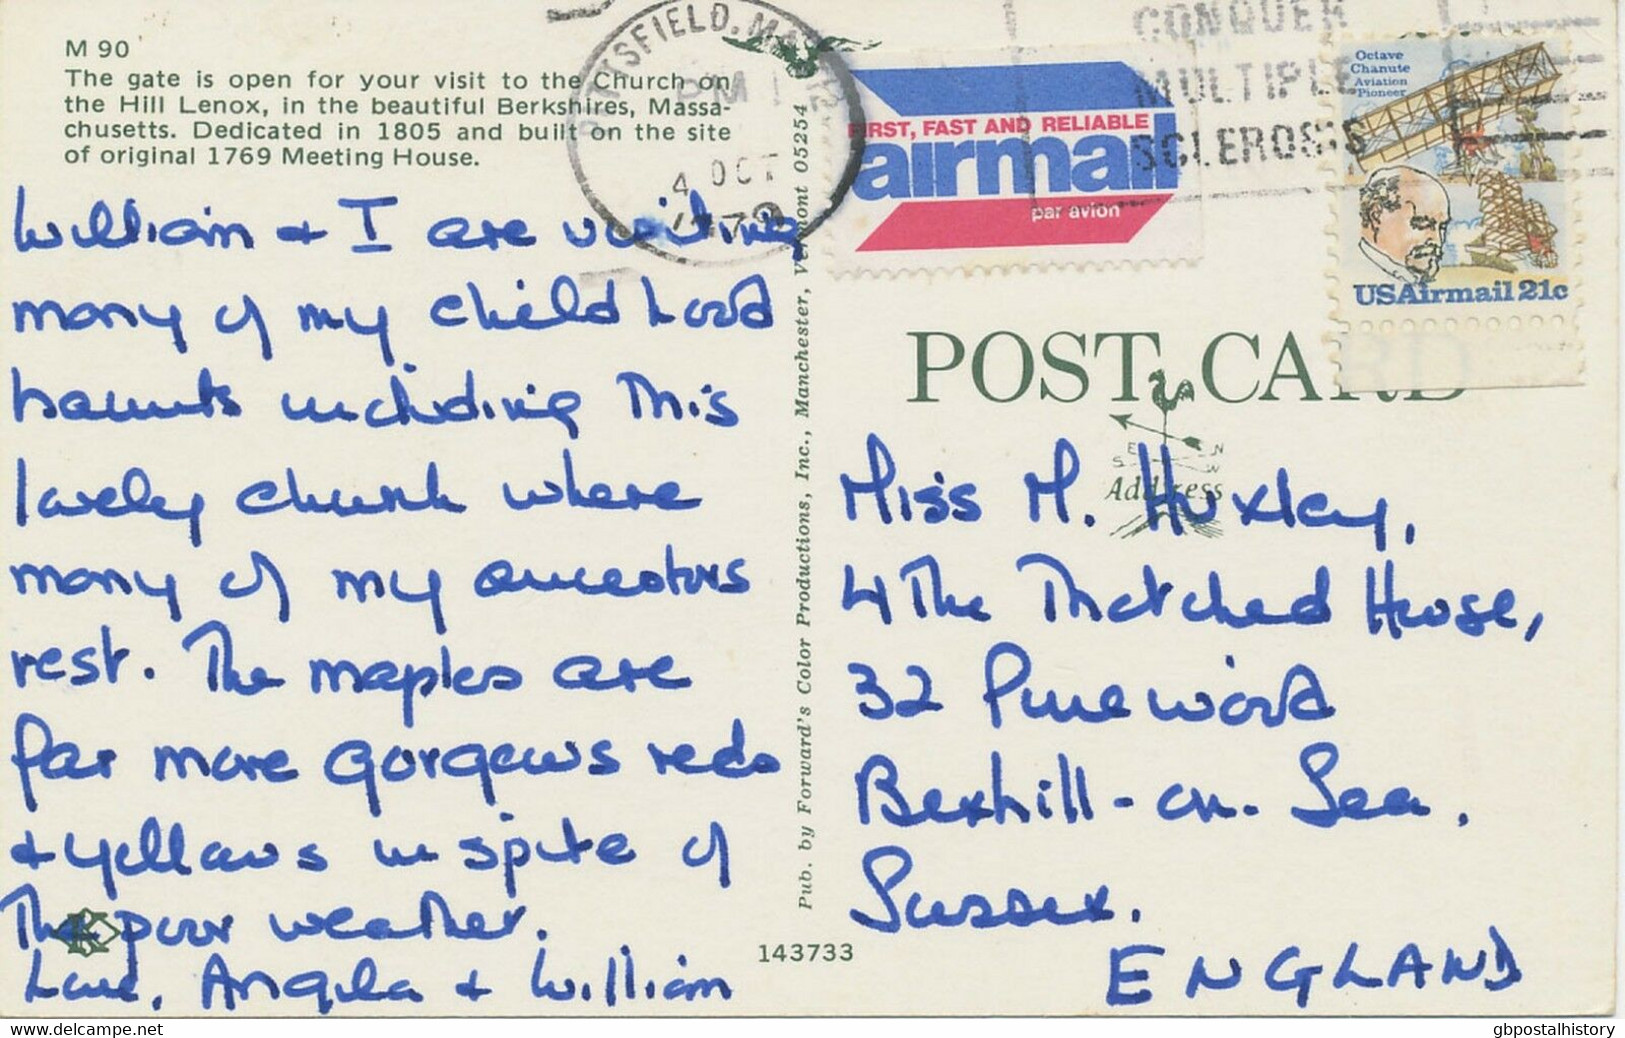 M 90
The gate is open for your visit to the Church on
the Hill Lenox, in the beautiful Berkshires, Massa-
chusetts. Dedicated in 1805 and built on the site
of original 1769 Meeting House.
William + I are visiting
many of my childhood
haunts including this
lovely church where
many of my ancestors
rest. The maples are
far more gorgeous reds
+ yellows in spite of
the poor weather.
Love, Angela + William
Pub. by Forward's Color Productions, Inc., Manchester, Vermont 05254
143733
PITTSFIELD, MA
PM
4 OCT
1979
FIRST, FAST AND RELIABLE
airmail
par avion
CONQUER
MULTIPLE
SCLEROSIS
Octave
Chanute
Aviation
Pioneer
USAirmail 21c
POST CARD
E N
S W
Address
Miss M. Huxley,
4 The Thatched House,
32 Pinewood
Bexhill-on-Sea.
Sussex.
ENGLAND
delcampe.net
gbpostalhistory